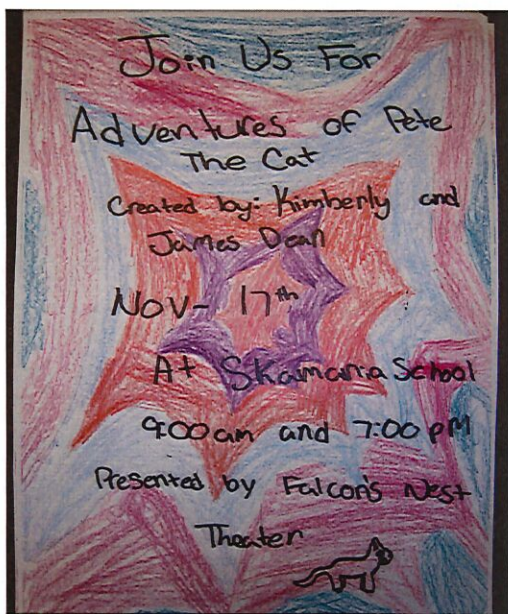 Join Us For
Adventures of Pete
The Cat
Created by: Kimberly and
James Dean
Nov- 17th
At Skamania School
9:00am and 7:00 pM
Presented by Falcon's Nest
Theater